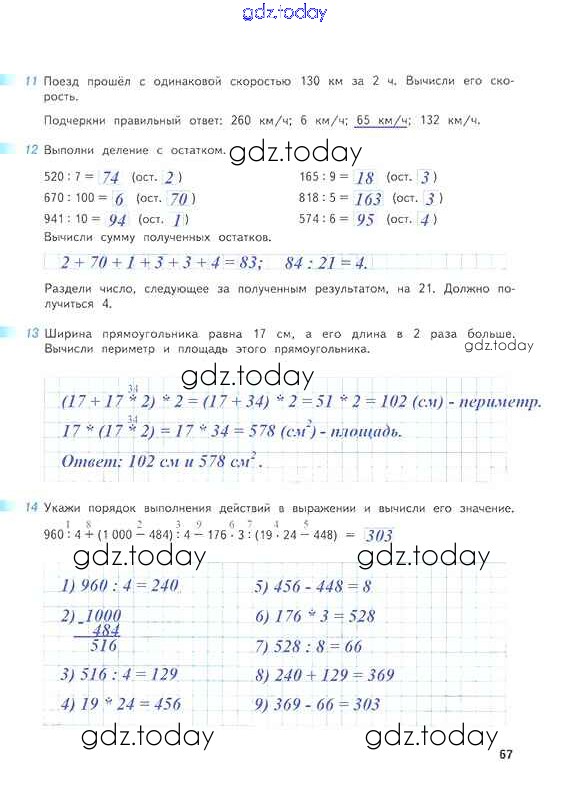 gdz.today
11 Поезд прошёл с одинаковой скоростью 130 км за 2 ч. Вычисли его ско-
рость.
Подчеркни правильный ответ: 260 км/ч; 6 км/ч; 65 км/ч; 132 км/ч.
12 Выполни деление с остатком.
gdz.today
520 : 7 = 74 (ост. 2) 165 : 9 = 18 (ост. 3)
670 : 100 = 6 (ост. 70) 818 : 5 = 163 (ост. 3)
941 : 10 = 94 (ост. 1) 574 : 6 = 95 (ост. 4)
Вычисли сумму полученных остатков.
2 + 70 + 1 + 3 + 3 + 4 = 83; 84 : 21 = 4.
Раздели число, следующее за полученным результатом, на 21. Должно по-
лучиться 4.
13 Ширина прямоугольника равна 17 см, а его длина в 2 раза больше.
Вычисли периметр и площадь этого прямоугольника.
gdz.today
gdz.today
34
(17 + 17 * 2) * 2 = (17 + 34) * 2 = 51 * 2 = 102 (см) - периметр.
34
17 * (17 * 2) = 17 * 34 = 578 (см²) - площадь.
Ответ: 102 см и 578 см².
gdz.today
gdz.today
14 Укажи порядок выполнения действий в выражении и вычисли его значение.
1 8 2 3 9 6 7 4 5
960 : 4 + (1 000 − 484) : 4 − 176 · 3 : (19 · 24 − 448) = 303
gdz.today
gdz.today
1) 960 : 4 = 240 5) 456 - 448 = 8
2) - 1000 6) 176 * 3 = 528
484
516 7) 528 : 8 = 66
3) 516 : 4 = 129 8) 240 + 129 = 369
4) 19 * 24 = 456 9) 369 - 66 = 303
gdz.today
gdz.today
67